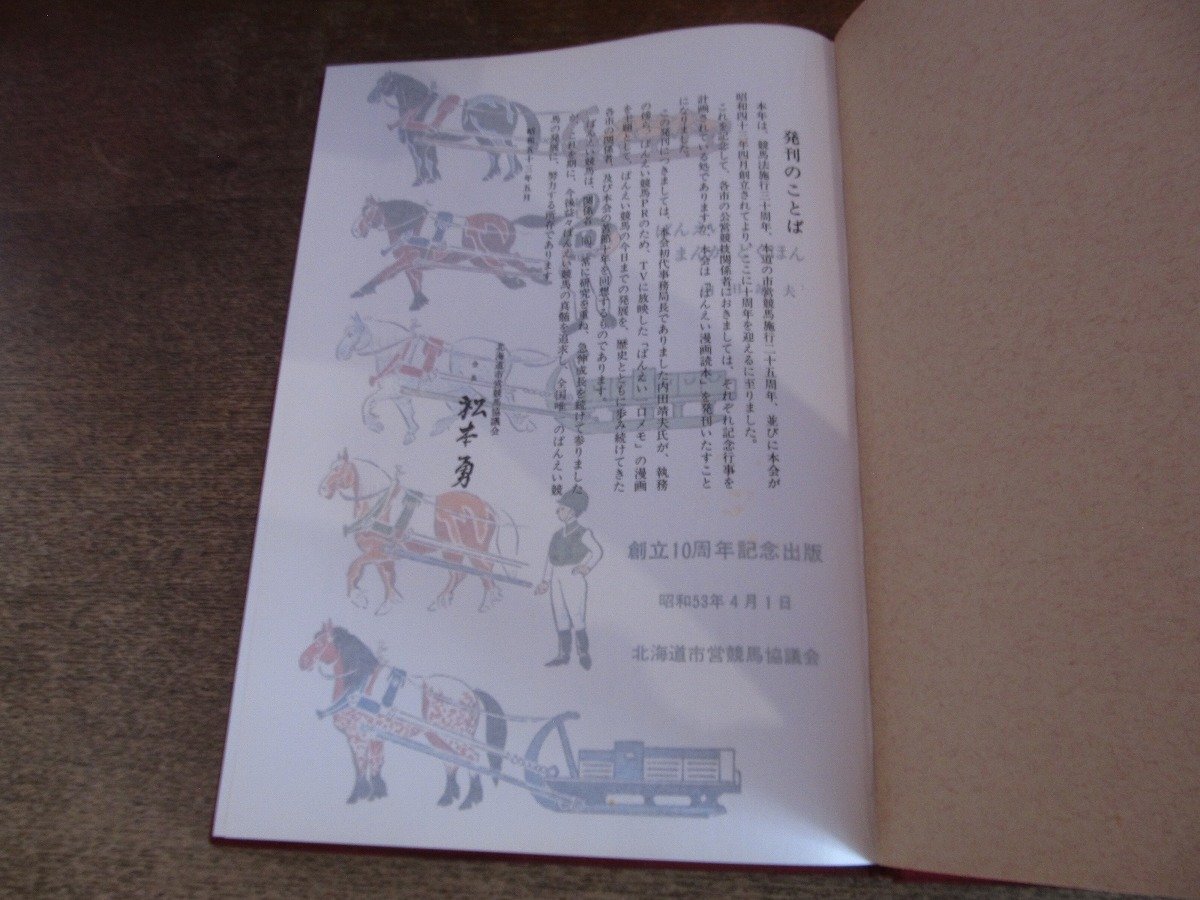 発刊のことば
本年は、競馬法施行三十周年、本道の市営競馬施行二十五周年、並びに本会が
昭和四十三年四月創立されてより、ここに十周年を迎えるに至りました。
これを記念して、各市の公営競技関係者におきましては、それぞれ記念行事を
計画されている処でありますが、本会は「ばんえい漫画読本」を発刊いたすこと
になりました。
この発刊につきましては、本会初代事務局長でありました内田靖夫氏が、執務
の傍ら、ばんえい競馬PRのため、TVに放映した「ばんえい一口メモ」の漫画
を主軸として、ばんえい競馬の今日までの発展を、歴史とともに歩み続けてきた
各市の関係者、及び本会の苦節十年を回想するものであります。
ばんえい競馬は、関係者一同、常に研究を重ね、急伸成長を続けて参りました
が、これを期に、今後益々ばんえい競馬の真髄を追求し、全国唯一のばんえい競
馬の発展に、努力する所存であります。
昭和五十三年五月
北海道市営競馬協議会
会長 松本勇
まんが とくほん
夫
創立10周年記念出版
昭和53年4月1日
北海道市営競馬協議会